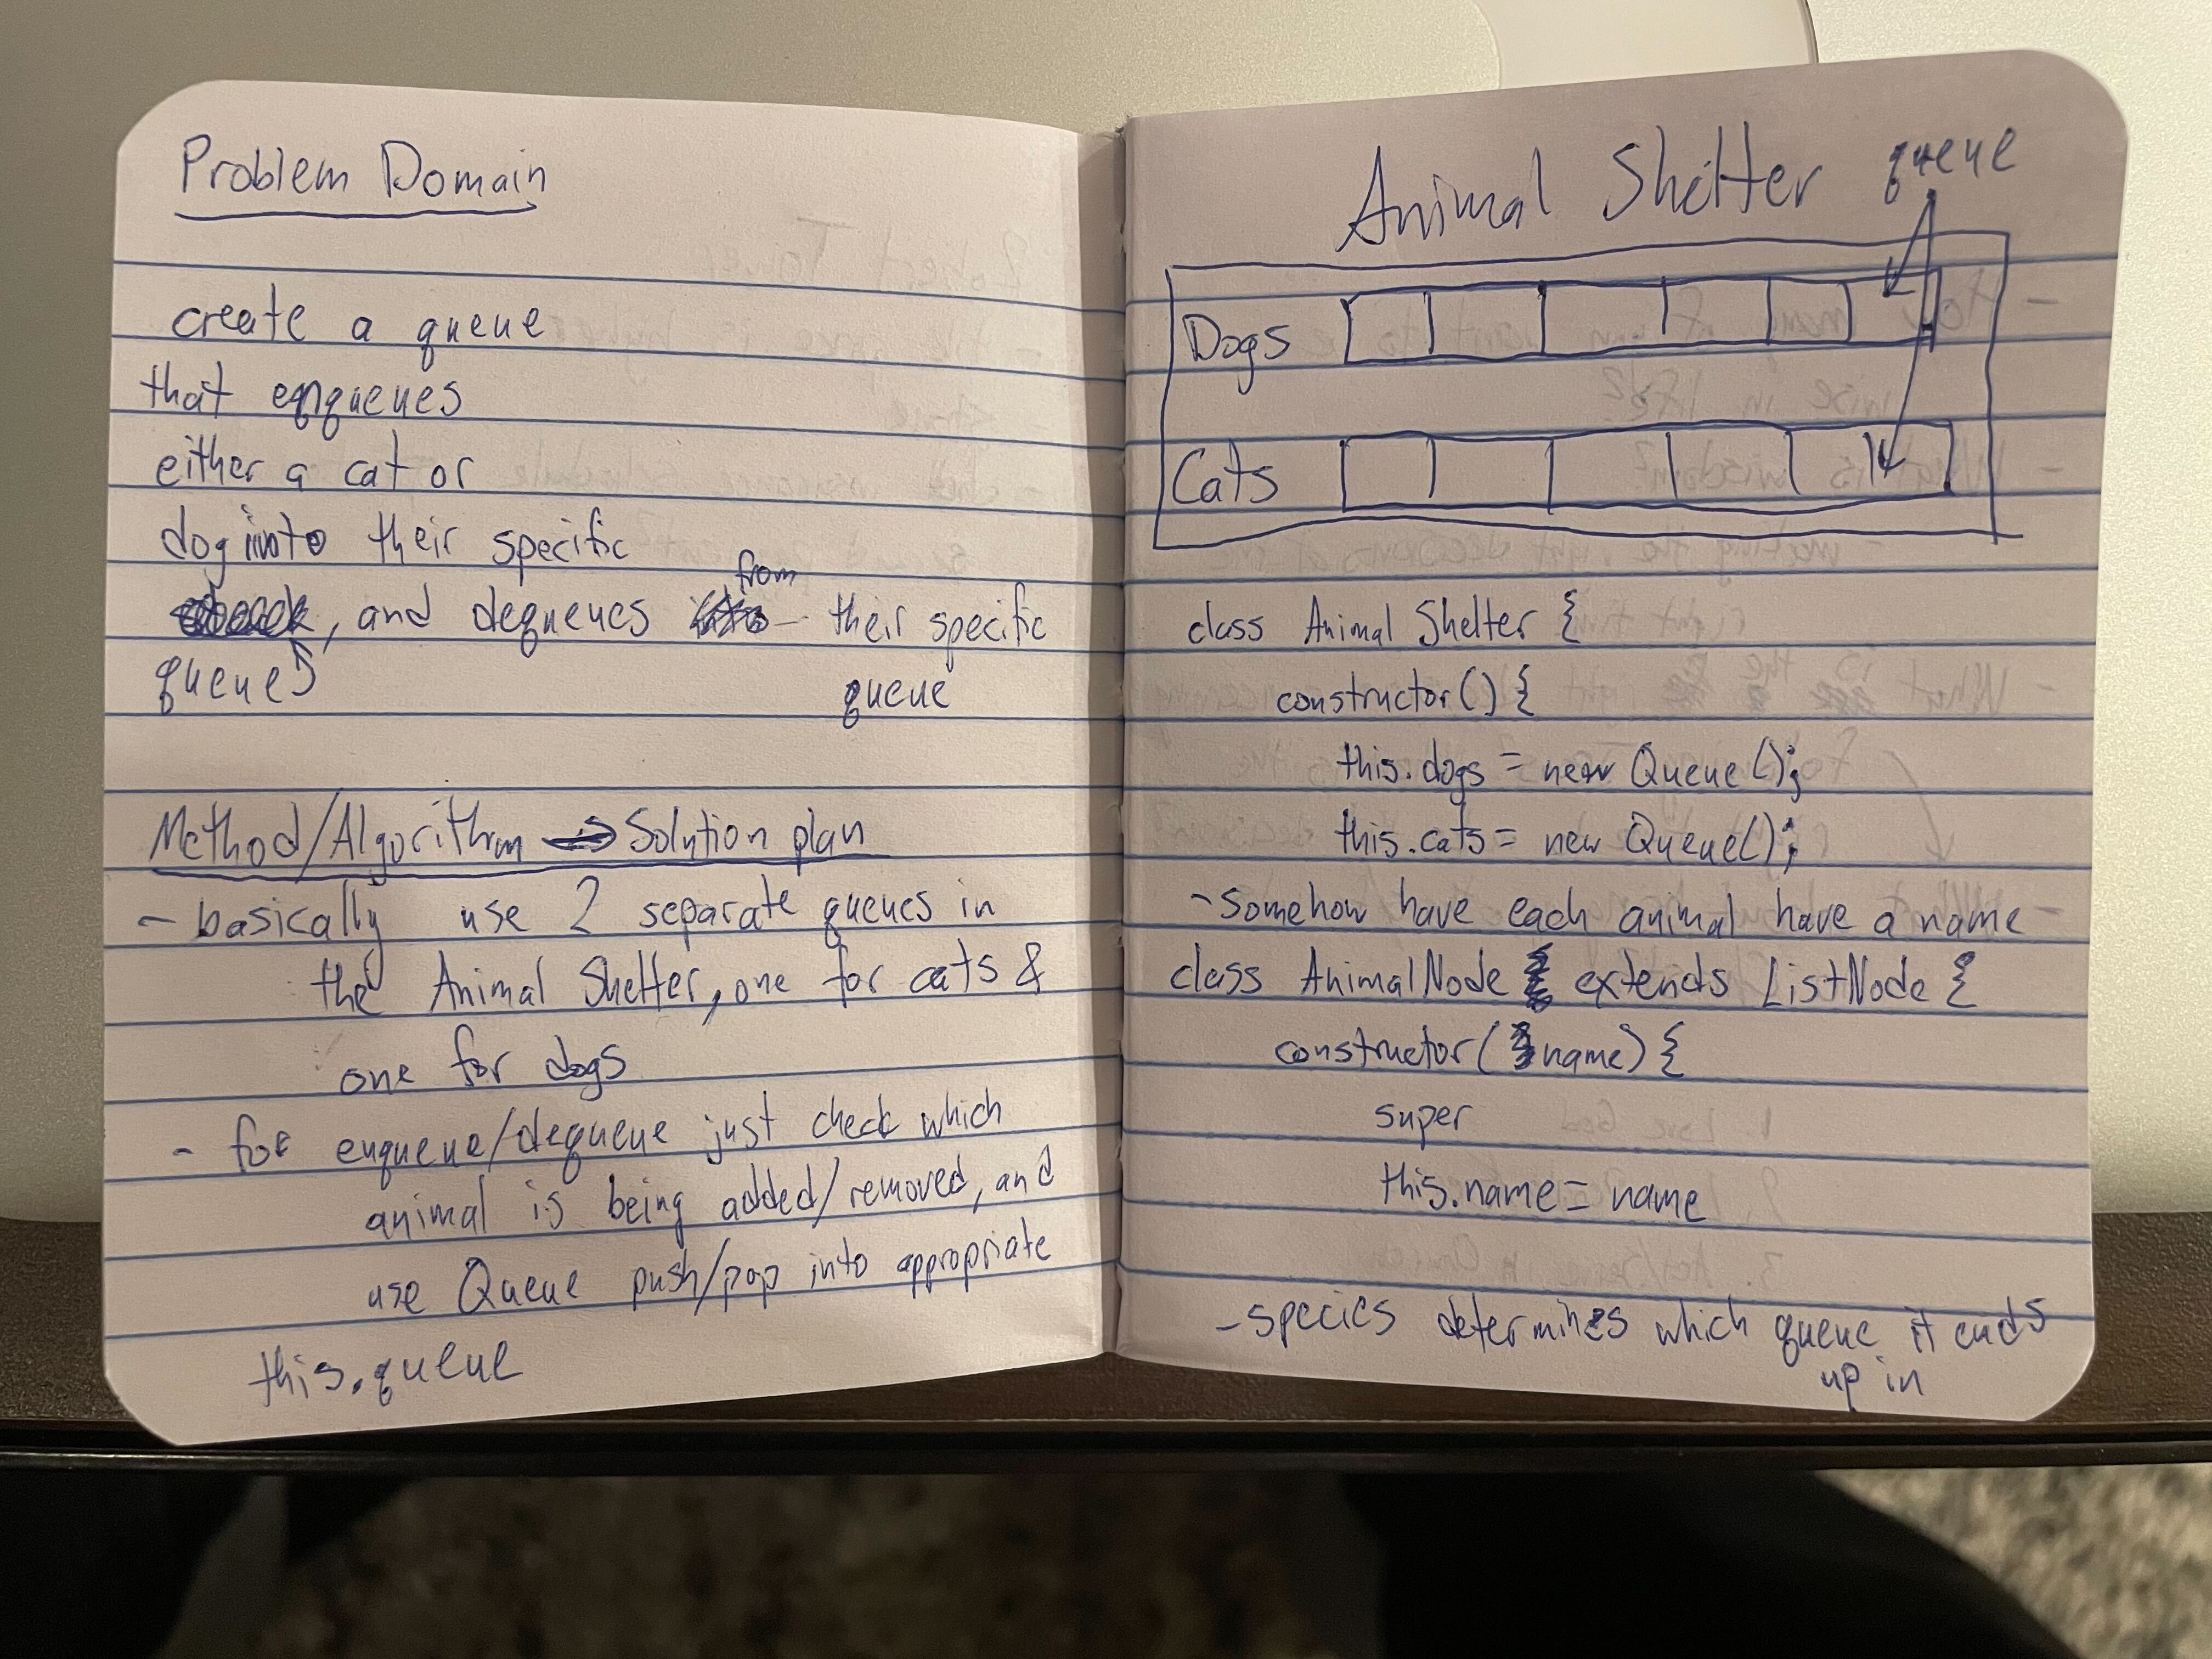 Problem Domain
create a queue
that enqueues
either a cat or
dog into their specific
from
, and dequeues their specific
queue queue
Method/Algorithm → Solution plan
- basically use 2 separate queues in
the Animal Shelter, one for cats &
one for dogs
- for enqueue/dequeue just check which
animal is being added/removed, and
use Queue push/pop into appropriate
this.queue
Animal Shelter queue
Dogs
Cats
class Animal Shelter {
constructor() {
this.dogs = new Queue();
this.cats = new Queue();
- somehow have each animal have a name
class AnimalNode extends ListNode {
constructor(name) {
super
this.name = name
- species determines which queue it ends
up in